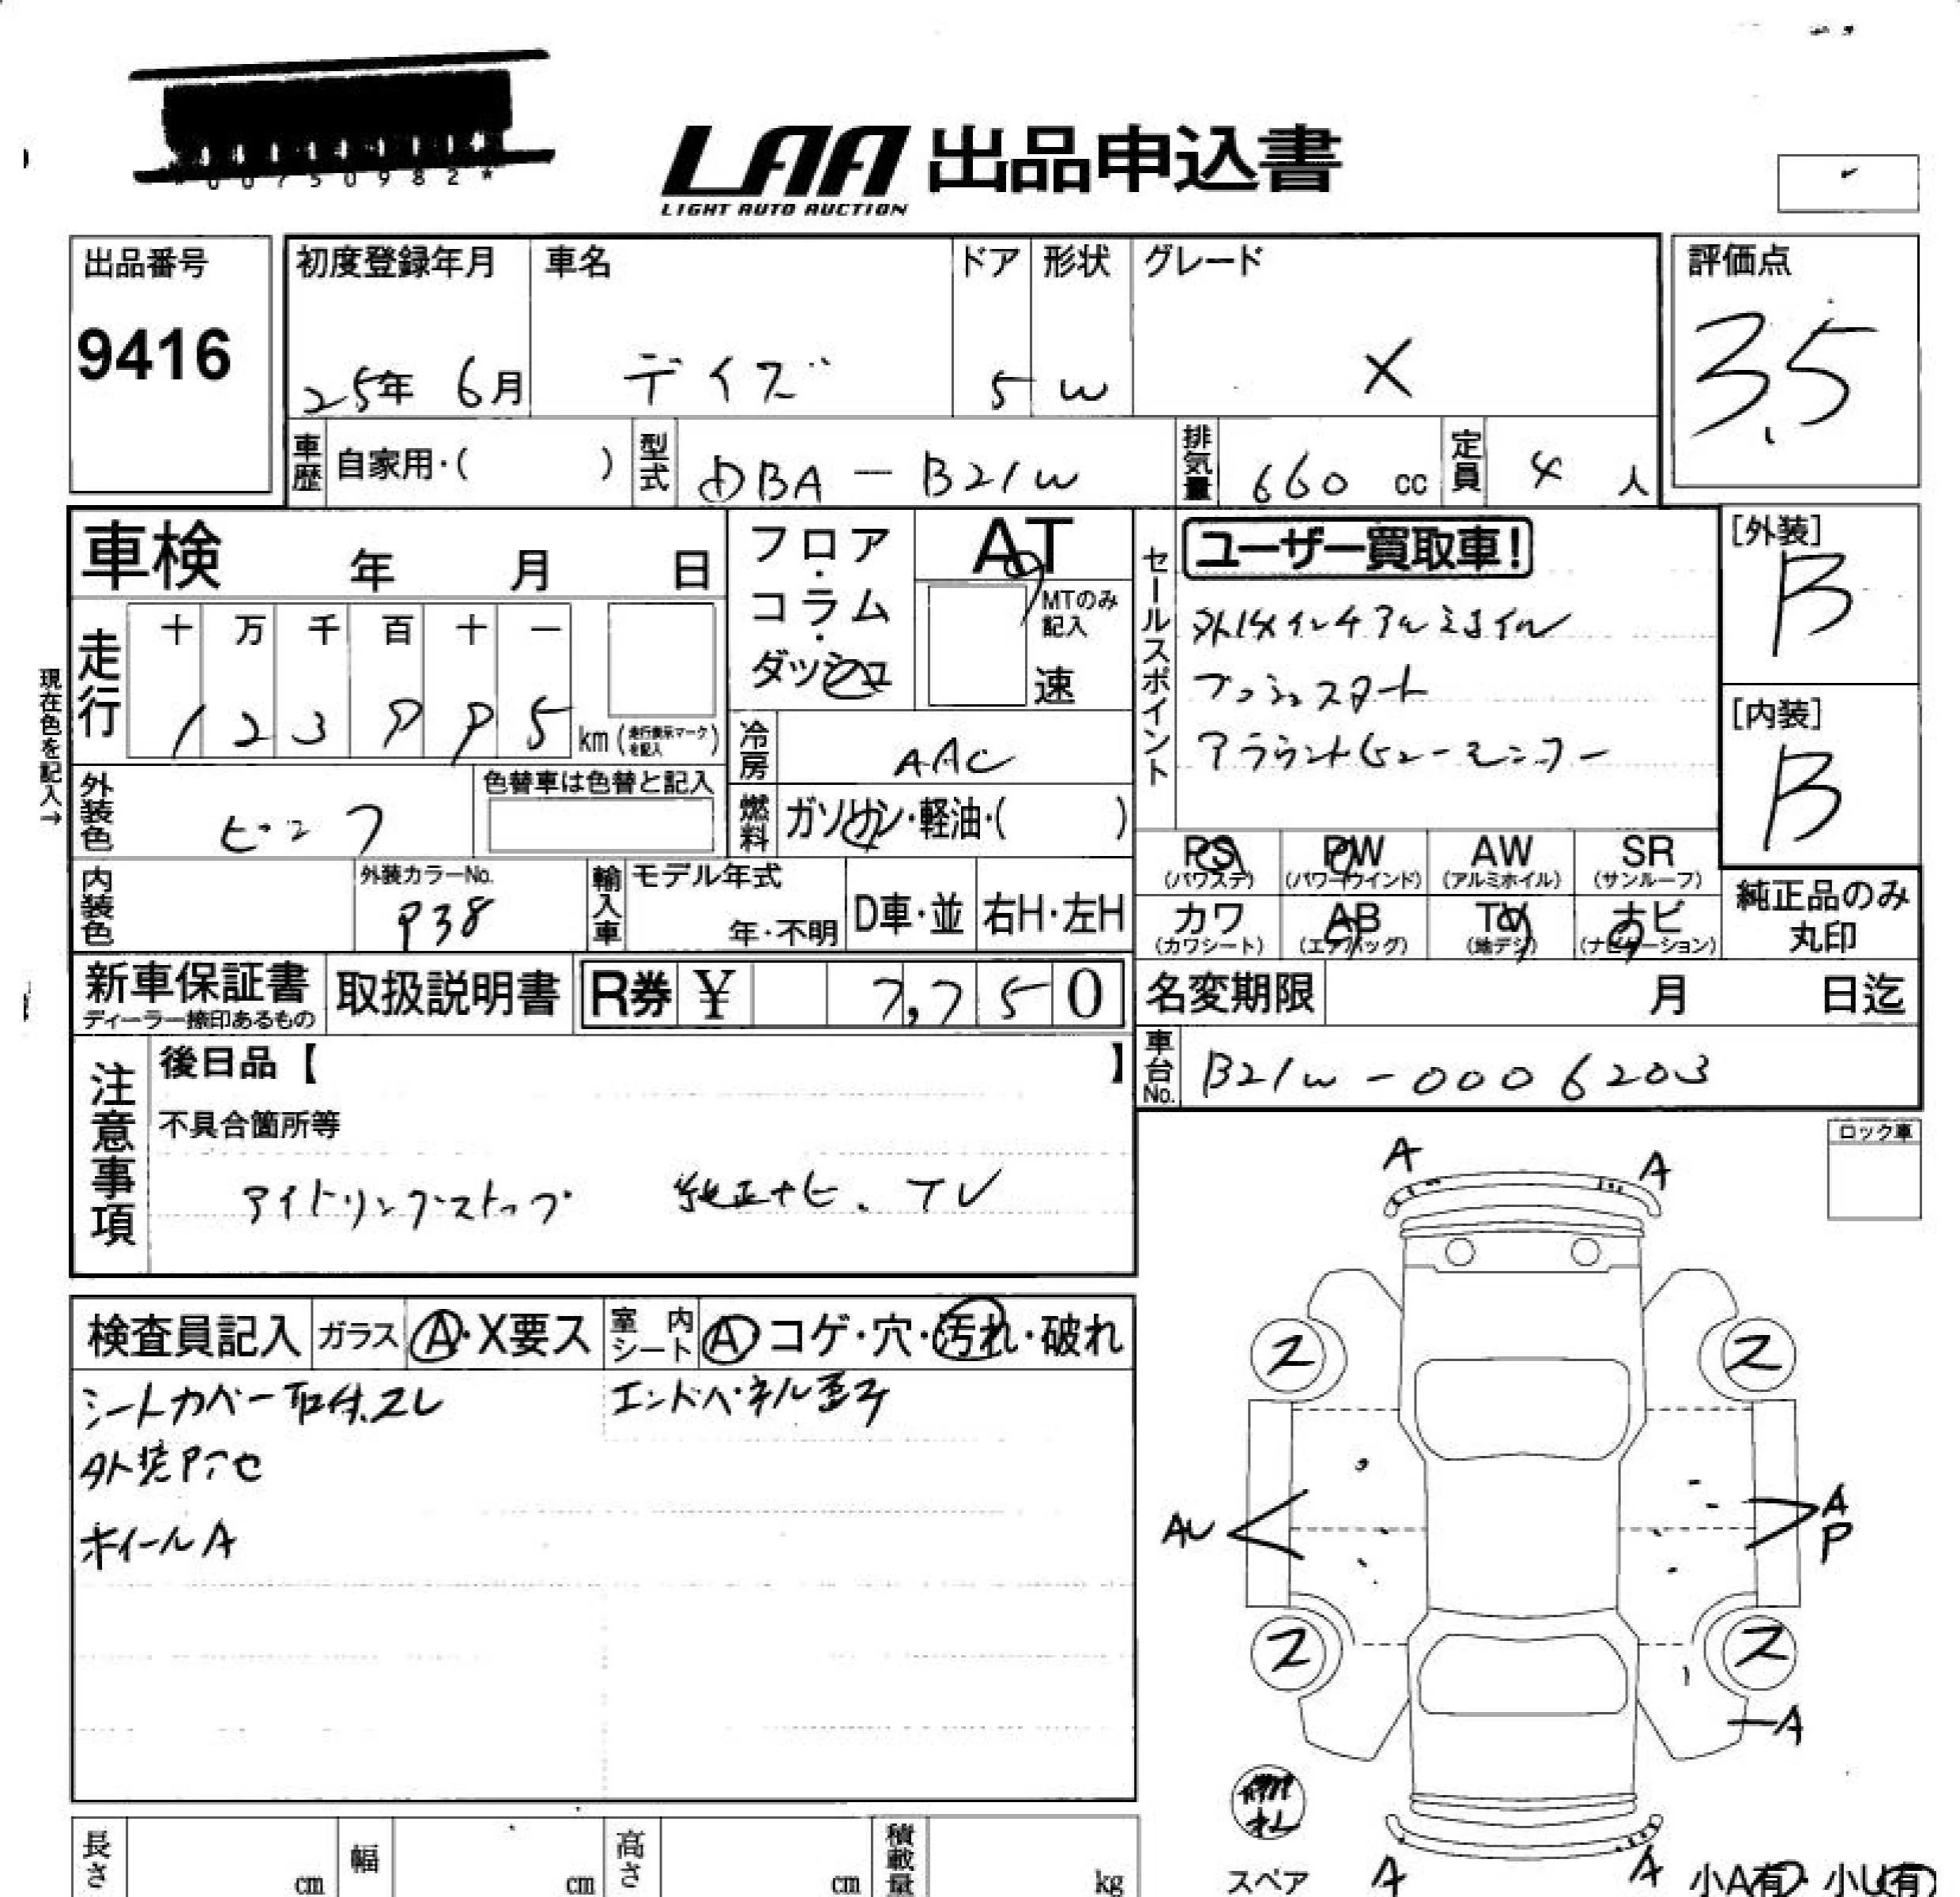 *00750982*
LAA 出品申込書
LIGHT AUTO AUCTION
出品番号
9416
初度登録年月
25年 6月
車名
デイズ
ドア
5
形状
W
グレード
X
評価点
3.5
車歴
自家用・( )
型式
DBA-B21W
排気量
660 cc
定員
4 人
車検 年 月 日
フロア・コラム・ダッシュ
AT
MTのみ記入
速
セールスポイント
ユーザー買取車!
外14インチアルミホイル
プッシュスタート
アラウンドビューモニター
[外装]
B
[内装]
B
現在色を記入→
走行
十 万 千 百 十 一
km(走行表示マークを記入)
冷房
AAC
外装色
ピンク
色替車は色替と記入
燃料
ガソリン・軽油・( )
内装色
外装カラーNo.
P38
輸入車
モデル年式
年・不明
D車・並
右H・左H
PS
(パワステ)
PW
(パワーウインド)
AW
(アルミホイル)
SR
(サンルーフ)
カワ
(カワシート)
AB
(エアバッグ)
TV
(地デジ)
ナビ
(ナビゲーション)
純正品のみ
丸印
新車保証書
ディーラー捺印あるもの
取扱説明書
R券 ¥ 7,750
名変期限 月 日迄
車台No.
B21W-0006203
注意事項
後日品【 】
不具合箇所等
アイドリングストップ 純正ナビ.TV
ロック車
検査員記入
ガラス
A・X要ス
室内シート
A コゲ・穴・汚れ・破れ
シートカバー取付.スレ
エンドパネル歪ミ
ホイールA
A
A
ス
ス
AU
A
P
ス
ス
A
A
A
スペア
小A有・小U有
長さ cm
幅 cm
高さ cm
積載量 kg